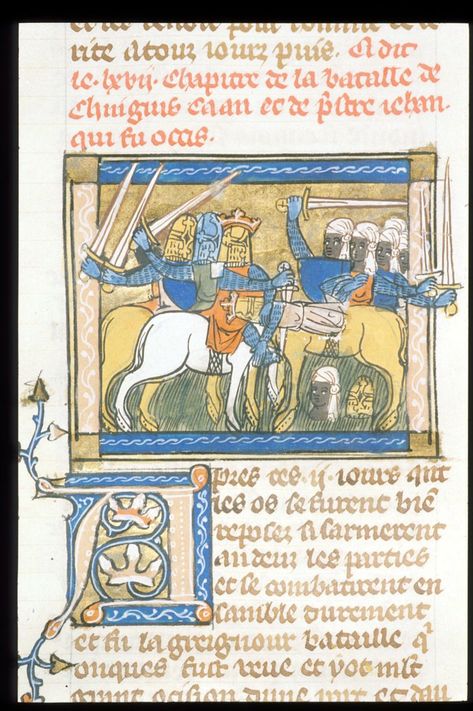 rite a touz iours puis. Ci dit
le .lxvij. chapitre de la bataille de
Chinguis caan et de p̄stre iehan.
qui fu ocas.
Apres ces .ij. iours q̄nt
les os se furent biē
reposez si sarmerent
andeux les parties
et se combatirent en
samble durement
et fu la greignour bataille q̄
onques fust veue et yot mlt
grant ocision dune part et dau